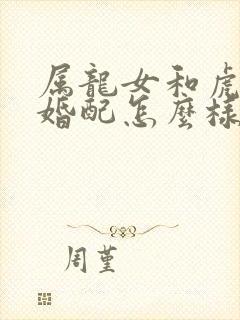 属龍女和虎
婚配怎麼樣
周堇